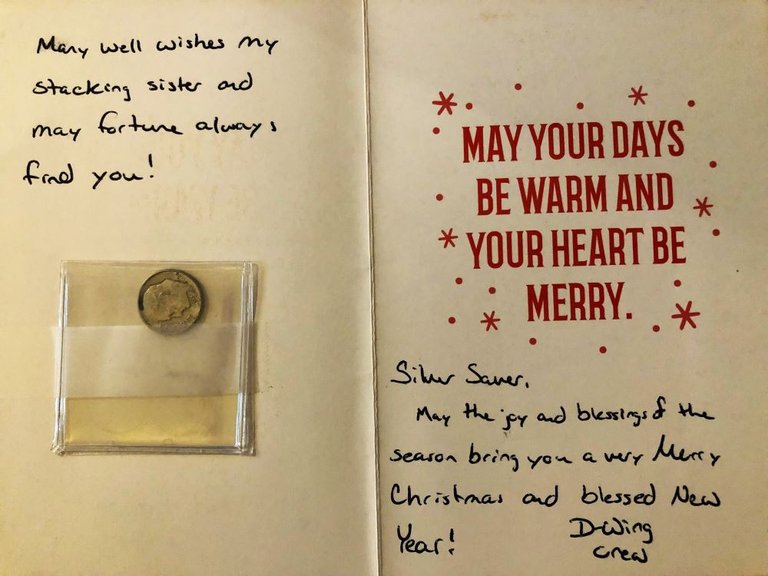 Many well wishes my
stacking sister and
may fortune always
find you!
MAY YOUR DAYS
BE WARM AND
YOUR HEART BE
MERRY.
Silver Saver,
May the joy and blessings of the
season bring you a very Merry
Christmas and blessed New
Year!
D-Wing
crew